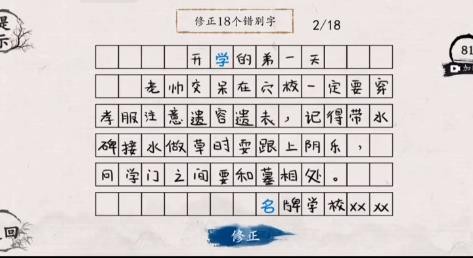 提示
修正18个错别字 2/18
81
加
开学的第一天
老帅交呆在六校一定要穿
孝服注意遗容遗未，记得带水
碑接水做草时耍跟上阴乐，
冋学门之间要和墓相处。
名牌学校xx xx
回
修正